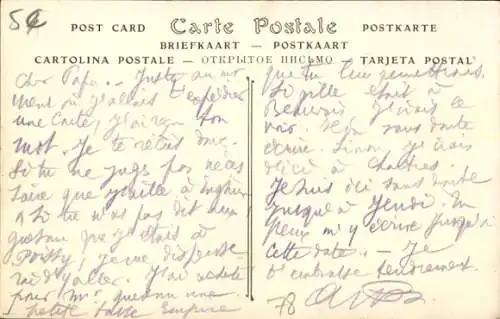 5€
POST CARD Carte Postale POSTKARTE
BRIEFKAART — POSTKAART
CARTOLINA POSTALE — ОТКРЫТОЕ ПИСЬМО — TARJETA POSTAL
Cher Papa. — Juste au mo
ment où j'allais t'expédier
une Carte, j'ai reçu ton
mot. Je te écris donc.
Si tu ne juges pas néces
saire que j'aille à
& Si tu n'as pas dit aux
que je étais à
Poissy, je me dispense
rai d'aller. J'ai acheté
pour Mr une
petite tasse Empire
que tu
Si elle était à
Beauvais j'irais le
voir. sans doute
écrire. Sinon, j'irais
d'ici à Chartres.
Je suis ici sans doute
jusqu'à Jeudi. Tu
peux m'y écrire jusqu'à
cette date. — Je
t'embrasse tendrement.
78